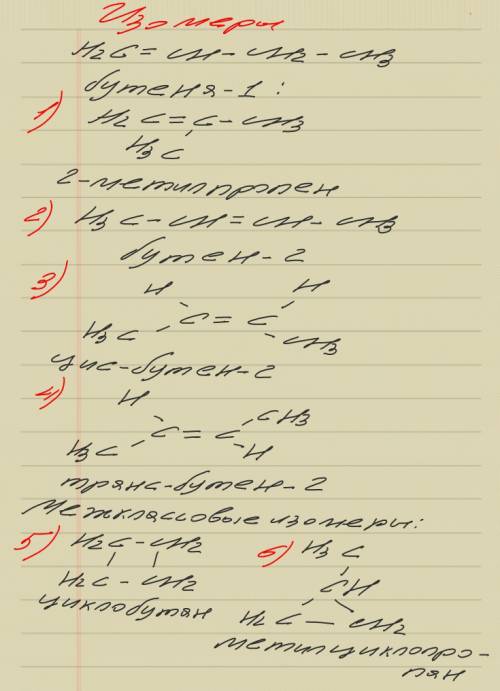 Изомеры
H2C=CH-CH2-CH3
бутена-1:
1) H2C=C-CH3
H3C
2-метилпропен
2) H3C-CH=CH-CH3
бутен-2
3) H H
C=C
H3C CH3
цис-бутен-2
4) H CH3
C=C
H3C H
транс-бутен-2
Межклассовые изомеры:
5) H2C-CH2
H2C-CH2
циклобутан
6) H3C
CH
H2C-CH2
метилциклопро-
пан